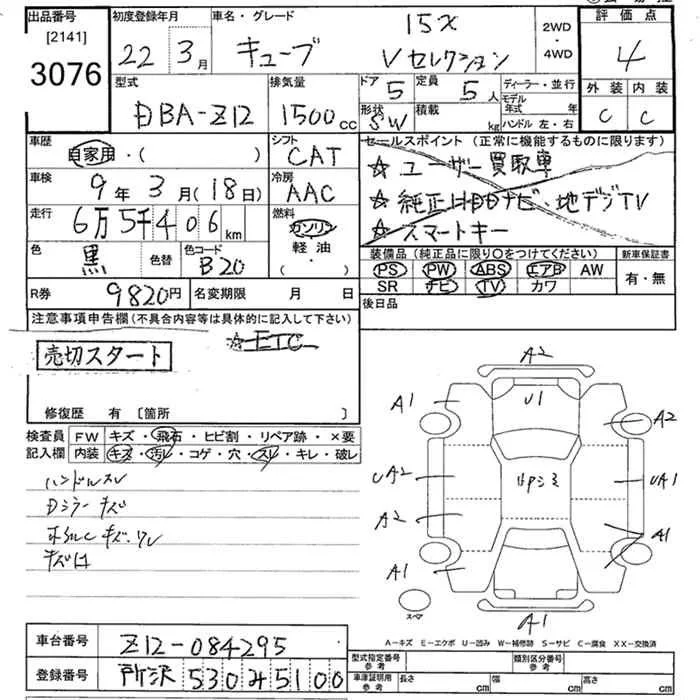 出品番号 初度登録年月 車名・グレード 15X 2WD・4WD 評価点
[2141]
3076 22 3月 キューブ Vセレクション 4
型式 排気量 ドア 定員 ディーラー・並行 外装 内装
DBA-Z12 1500cc 5 5人 モデル年式 年 C C
形状 SW 積載 kg ハンドル 左・右
車歴 自家用・( ) シフト CAT セールスポイント (正常に機能するものに限ります)
☆ ユーザー買取車
車検 9年3月(18日) 冷房 AAC ☆ 純正HDDナビ・地デジTV
走行 6万5千406km 燃料 ガソリン・軽油・ ☆ スマートキー
色 黒 色替 色コード B20 装備品 (純正品に限り○をつけてください) 新車保証書
PS PW ABS エアB AW 有・無
SR ナビ TV カワ
R券 9820円 名変期限 月 日 後日品
注意事項申告欄 (不具合内容等は具体的に記入して下さい)
☆ETC
売切スタート
修復歴 有 [箇所 ]
検査員記入欄 FW キズ・飛石・ヒビ割・リペア跡・×要
内装 キズ・汚レ・コゲ・穴・スレ・キレ・破レ
ハンドルスレ
Dミラーキズ
ホイルC キズ・ワレ
A2
A1 U1 A2
UA2 UA1
A2 A1
A1
A1
スペア
A-キズ E-エクボ U-凹み W-補修跡 S-サビ C-腐食 XX-交換済
車台番号 Z12-084295
登録番号 所沢 530 み 5100
型式指定番号 参考 類別区分番号 参考
車庫証明用 参考 長さ cm 幅 cm 高さ cm